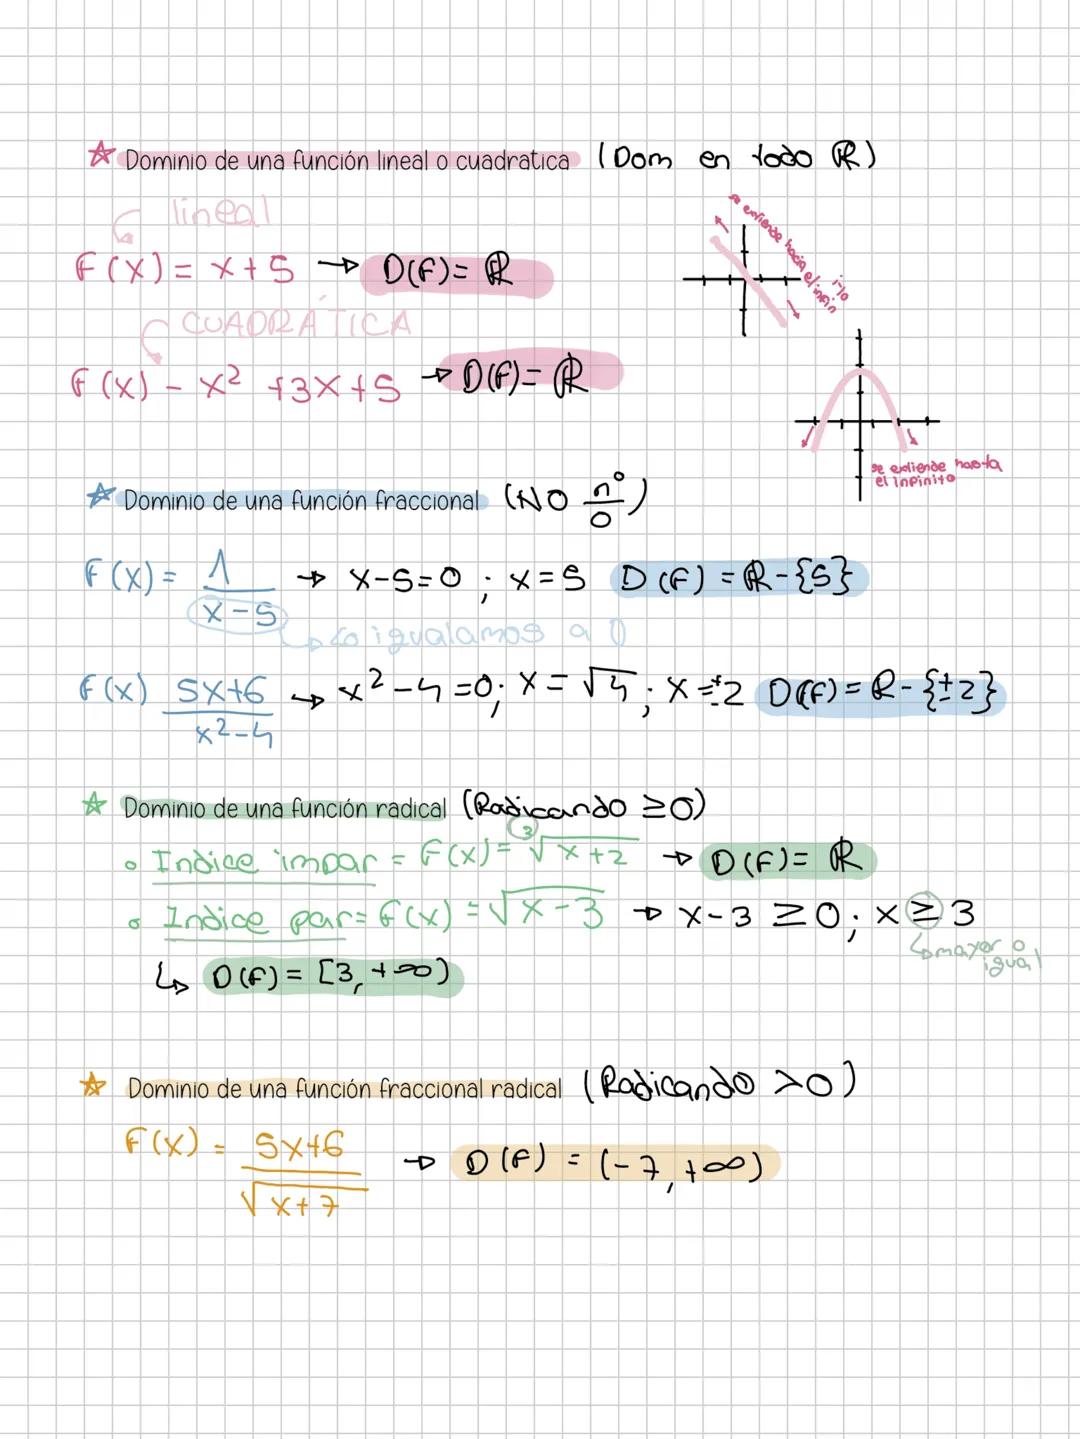 Dominio de una función lineal o cuadratica (Dom en todo ℝ)
lineal
F(x) = x+5 → D(F)= ℝ
se extiende hacia el infinito
CUADRÁTICA
F(x) - x² +3x+5 → D(F)= ℝ
se extiende hasta
el infinito
Dominio de una función fraccional (NO n°/0)
F(x) = 1/(x-5) → x-5=0 ; x=5 D(F) = ℝ-{5}
↳ lo igualamos a 0
F(x) (5x+6)/(x²-4) → x²-4=0; x=√4; x=±2 D(F)= ℝ-{±2}
Dominio de una función radical (Radicando ≥0)
Indice impar = F(x)= ³√x+2 → D(F)= ℝ
Indice par= F(x) =√x-3 → x-3 ≥0; x≥3
↳mayor o
igual
↳ D(F)= [3,+∞)
Dominio de una función fraccional radical (Radicando >0)
F(x) = (5x+6)/(√x+7) → D(F) = (-7,+∞)